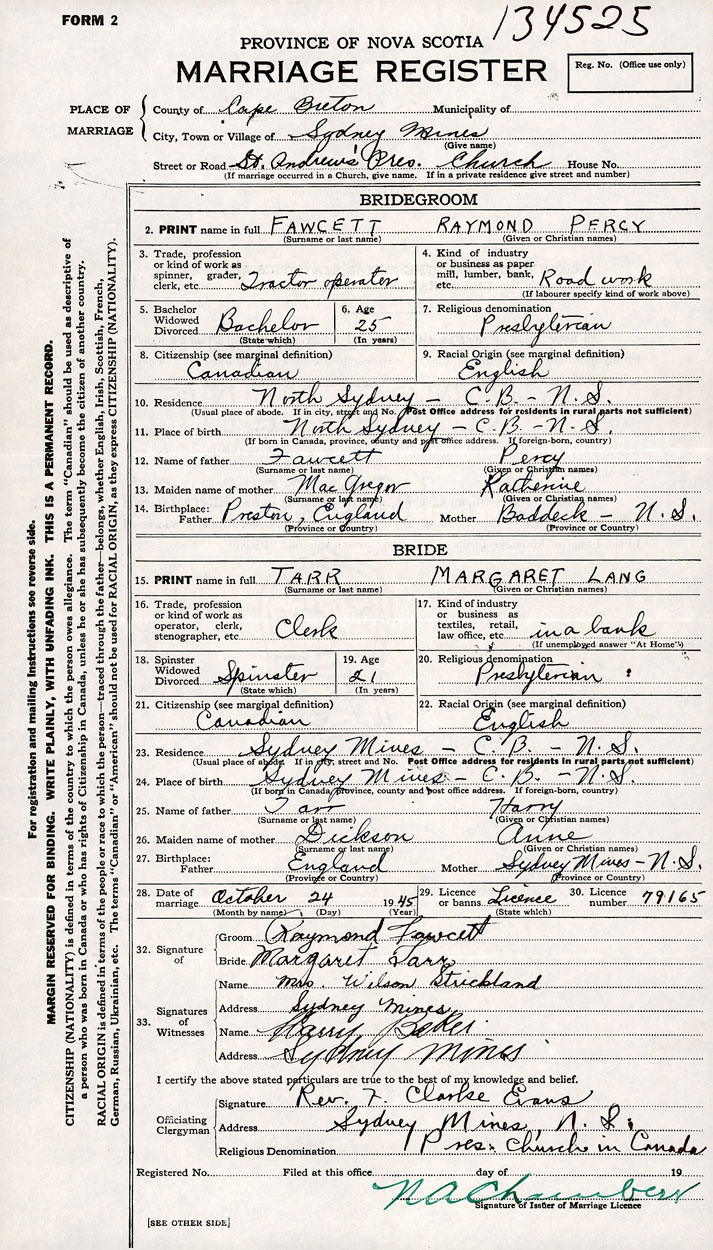 FORM 2
134525
PROVINCE OF NOVA SCOTIA
MARRIAGE REGISTER
Reg. No. (Office use only)
PLACE OF MARRIAGE
County of Cape Breton Municipality of
City, Town or Village of Sydney Mines
(Give name)
Street or Road St. Andrew's Pres. Church House No.
(If marriage occurred in a Church, give name. If in a private residence give street and number)
BRIDEGROOM
2. PRINT name in full FAWCETT RAYMOND PERCY
(Surname or last name) (Given or Christian names)
3. Trade, profession or kind of work as spinner, grader, clerk, etc. Tractor operator
4. Kind of industry or business as paper mill, lumber, bank, etc. Road work
(If labourer specify kind of work above)
5. Bachelor Widowed Divorced Bachelor (State which)
6. Age 25 (In years)
7. Religious denomination Presbyterian
8. Citizenship (see marginal definition) Canadian
9. Racial Origin (see marginal definition) English
10. Residence North Sydney - C.B. - N.S.
(Usual place of abode. If in city, street and No. Post Office address for residents in rural parts not sufficient)
11. Place of birth North Sydney - C.B - N.S.
(If born in Canada, province, county and post office address. If foreign-born, country)
12. Name of father Fawcett Percy
(Surname or last name) (Given or Christian names)
13. Maiden name of mother MacGregor Katherine
(Surname or last name) (Given or Christian names)
14. Birthplace: Father Preston, England Mother Baddeck - N.S.
(Province or Country) (Province or Country)
BRIDE
15. PRINT name in full TARR MARGARET LANG
(Surname or last name) (Given or Christian names)
16. Trade, profession or kind of work as operator, clerk, stenographer, etc Clerk
17. Kind of industry or business as textiles, retail, law office, etc. in a bank
(If unemployed answer "At Home")
18. Spinster Widowed Divorced Spinster (State which)
19. Age 21 (In years)
20. Religious denomination Presbyterian
21. Citizenship (see marginal definition) Canadian
22. Racial Origin (see marginal definition) English
23. Residence Sydney Mines - C.B. - N.S.
(Usual place of abode. If in city, street and No. Post Office address for residents in rural parts not sufficient)
24. Place of birth Sydney Mines - C.B - N.S.
(If born in Canada, province, county and post office address. If foreign-born, country)
25. Name of father Tarr Harry
(Surname or last name) (Given or Christian names)
26. Maiden name of mother Dickson Anne
(Surname or last name) (Given or Christian names)
27. Birthplace: Father England Mother Sydney Mines - N.S.
(Province or Country) (Province or Country)
28. Date of marriage October 24 1945
(Month by name) (Day) (Year)
29. Licence or banns Licence (State which)
30. Licence number 79165
32. Signature of
Groom Raymond Fawcett
Bride Margaret Tarr
33. Signatures of Witnesses
Name Mrs. Wilson Strickland
Address Sydney Mines
Name Harry
Address Sydney Mines
I certify the above stated particulars are true to the best of my knowledge and belief.
Officiating Clergyman
Signature Rev. F. Clarke Evans
Address Sydney Mines, N.S.
Religious Denomination Pres. Church in Canada
Registered No. Filed at this office day of 19
N A Chambers
Signature of Issuer of Marriage Licence
[SEE OTHER SIDE]
For registration and mailing instructions see reverse side.
MARGIN RESERVED FOR BINDING. WRITE PLAINLY, WITH UNFADING INK. THIS IS A PERMANENT RECORD.
CITIZENSHIP (NATIONALITY) is defined in terms of the country to which the person owes allegiance. The term "Canadian" should be used as descriptive of
a person who was born in Canada or who has rights of Citizenship in Canada, unless he or she has subsequently become the citizen of another country.
RACIAL ORIGIN is defined in terms of the people or race to which the person—traced through the father—belongs, whether English, Irish, Scottish, French,
German, Russian, Ukrainian, etc. The terms "Canadian" or "American" should not be used for RACIAL ORIGIN, as they express CITIZENSHIP (NATIONALITY).